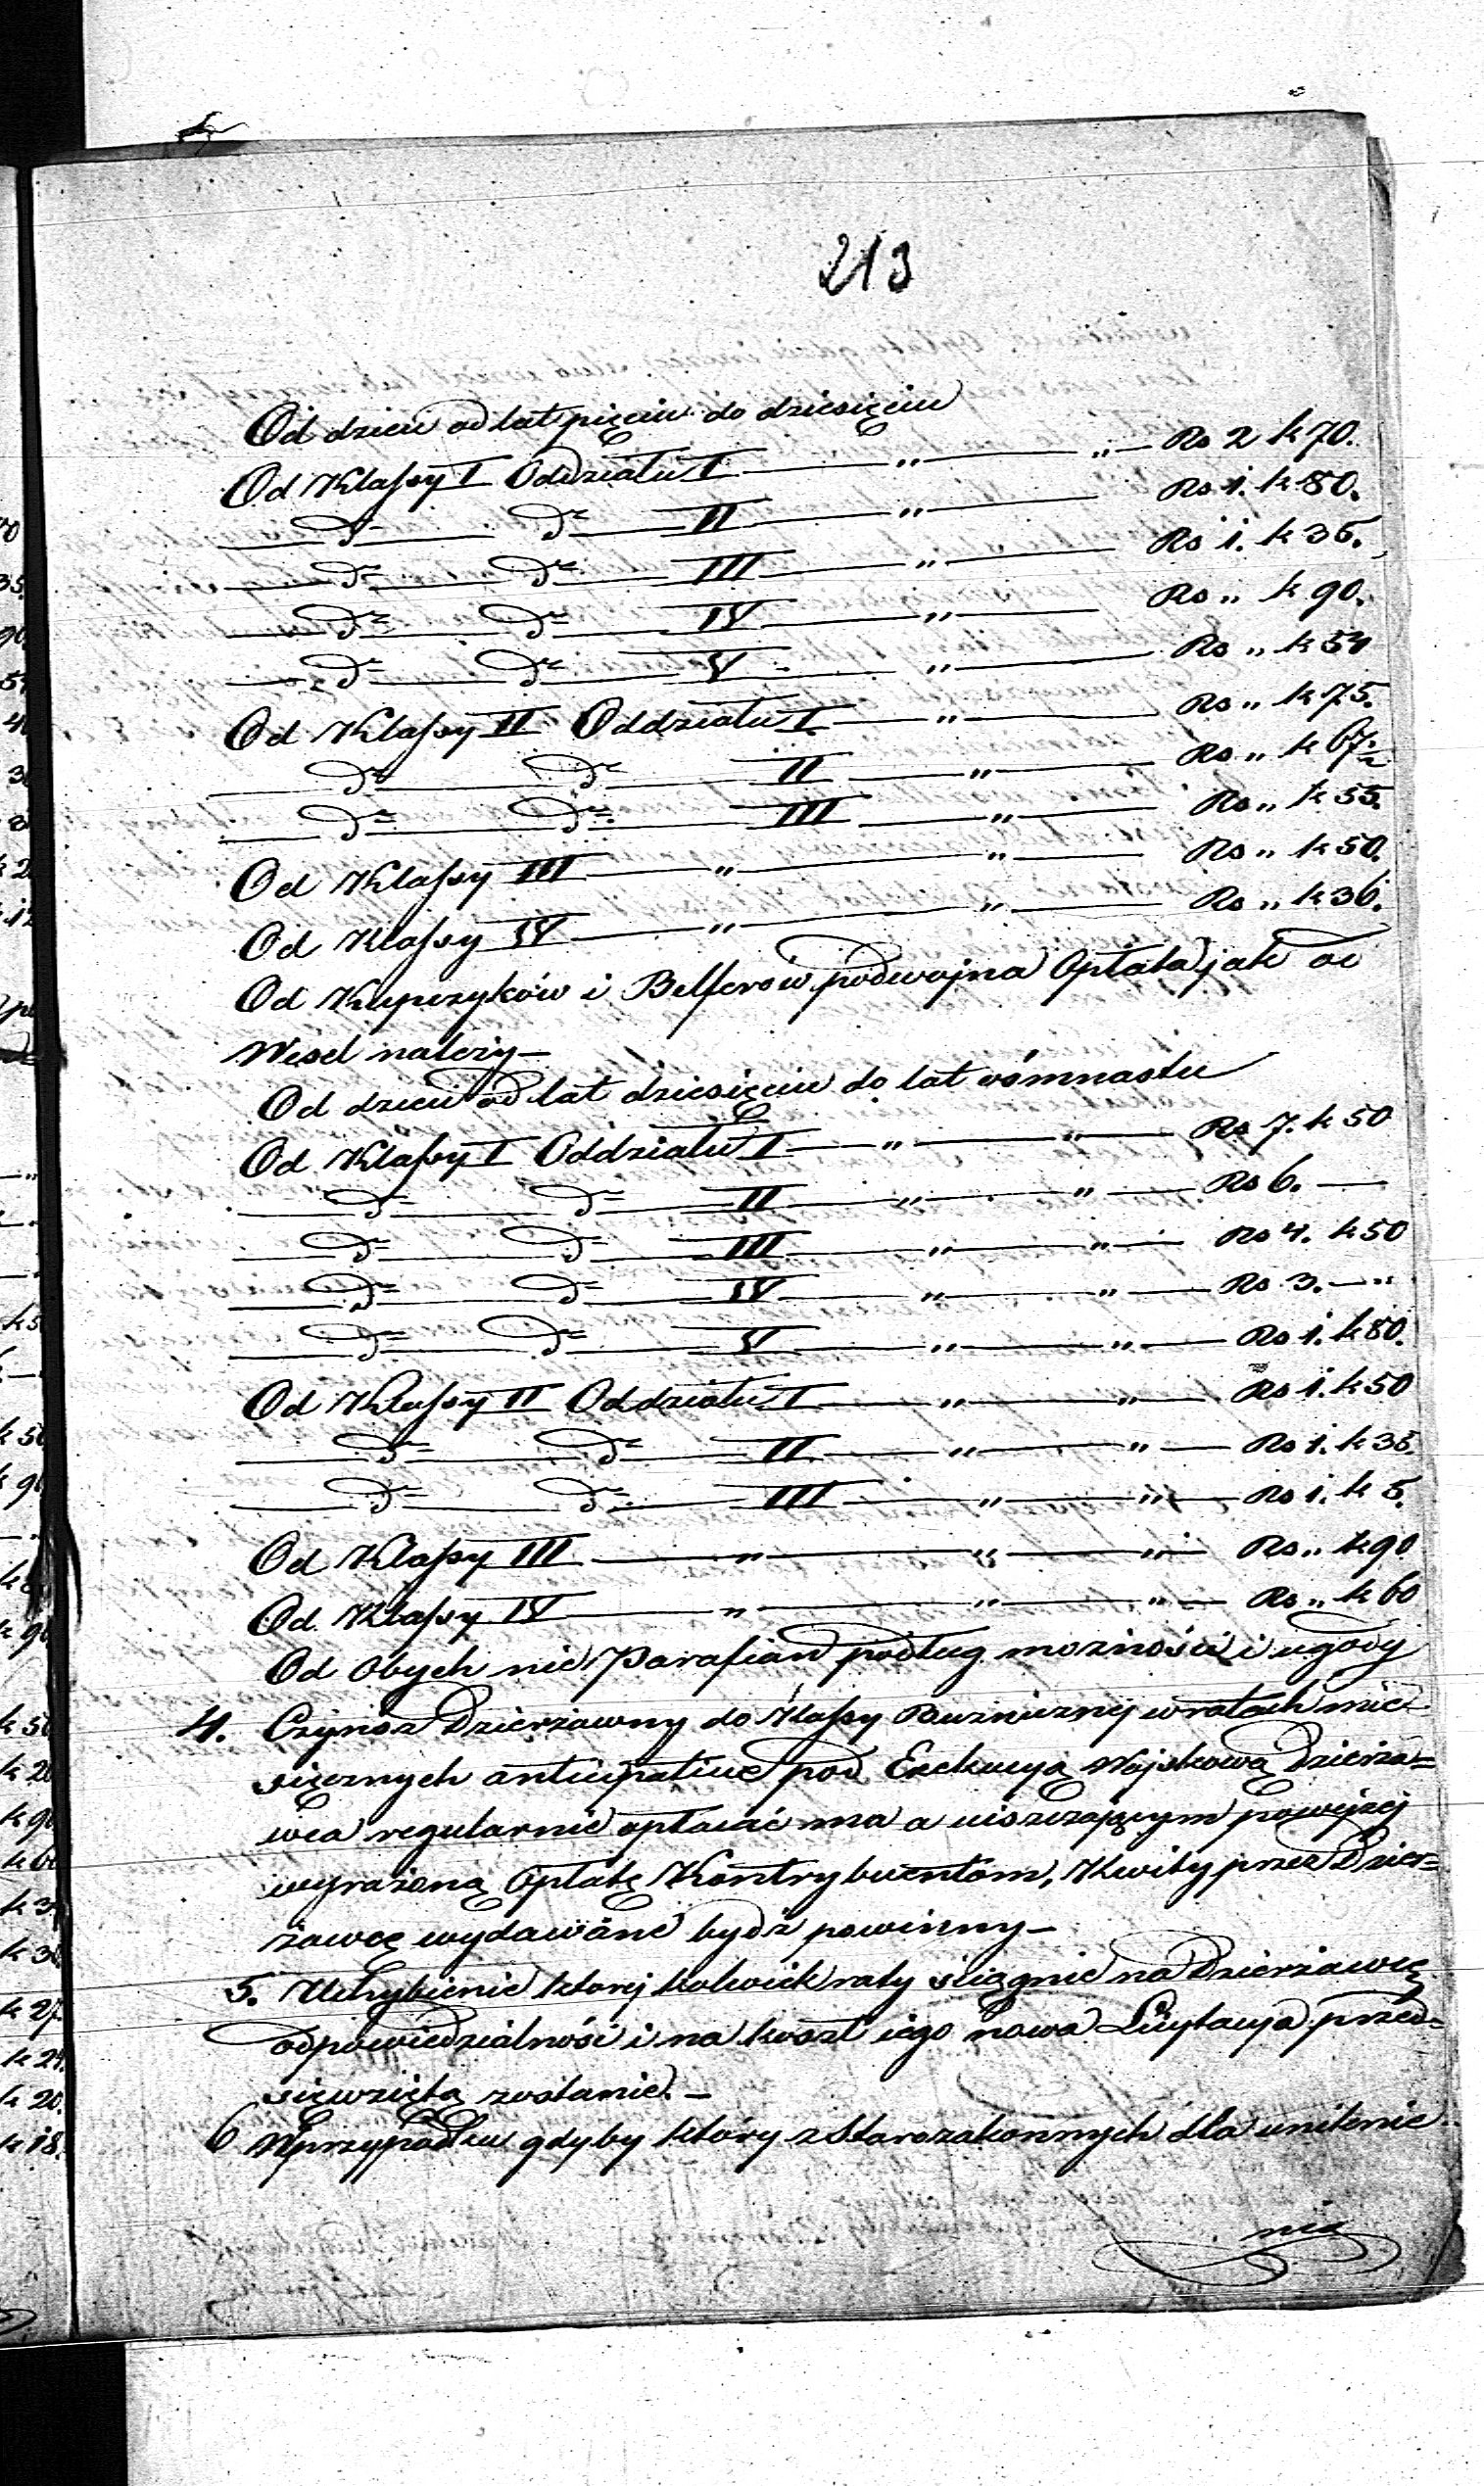 213
Od dzieci od lat pięciu do dziesięciu
Od Klassy I Oddziału I — „ — „ — Rs 2 k 70.
— do — do — II — „ — Rs 1. k 80.
— do — do — III — „ — Rs 1. k 35.
— do — do — IV — „ — Rs „ k 90.
— do — do — V — „ — Rs „ k 54
Od Klassy II Oddziału I — „ — Rs „ k 75.
— do — do — II — „ — Rs „ k 67 ½
— do — do — III — „ — Rs „ k 55.
Od Klassy III — „ — „ — Rs „ k 50.
Od Klassy IV — „ — „ — Rs „ k 36.
Od Kupczyków i Belferów podwojna Opłata jak od
Wesel należy —
Od dzieci od lat dziesięciu do lat ośmnastu
Od Klassy I Oddziału I — „ — „ — Rs 7. k 50
— do — do — II — „ — „ — Rs 6. —
— do — do — III — „ — „ — Rs 4. k 50
— do — do — IV — „ — „ — Rs 3. — „
— do — do — V — „ — „ — Rs 1. k 80.
Od Klassy II Oddziału I — „ — „ — Rs 1. k 50
— do — do — II — „ — „ — Rs 1. k 35
— do — do — III — „ — „ — Rs 1. k 5.
Od Klassy III — „ — „ — „ — Rs „ k 90
Od Klassy IV — „ — „ — „ — Rs „ k 60
Od Obych nie Parafian podług możności i ugody
4. Czynsz Dzierżawny do Kassy Bużniczney w ratach mie-
sięcznych anticipative pod Exekucyą Wojskową Dzierża=
wca regularnie opłacać ma a uiszczającym powyżej
wyrażoną Opłatę Kontrybuentom, Kwity przez Dzier=
żawcę wydawane bydź powinny —
5. Uchybienie której kolwiek raty ściągnie na Dzierżawcę
odpowiedzialność i na koszt iego nowa Licytacya przed=
siewziętą zostanie. —
6 W przypadku gdyby który z Starozakonnych dla uniknie
nia